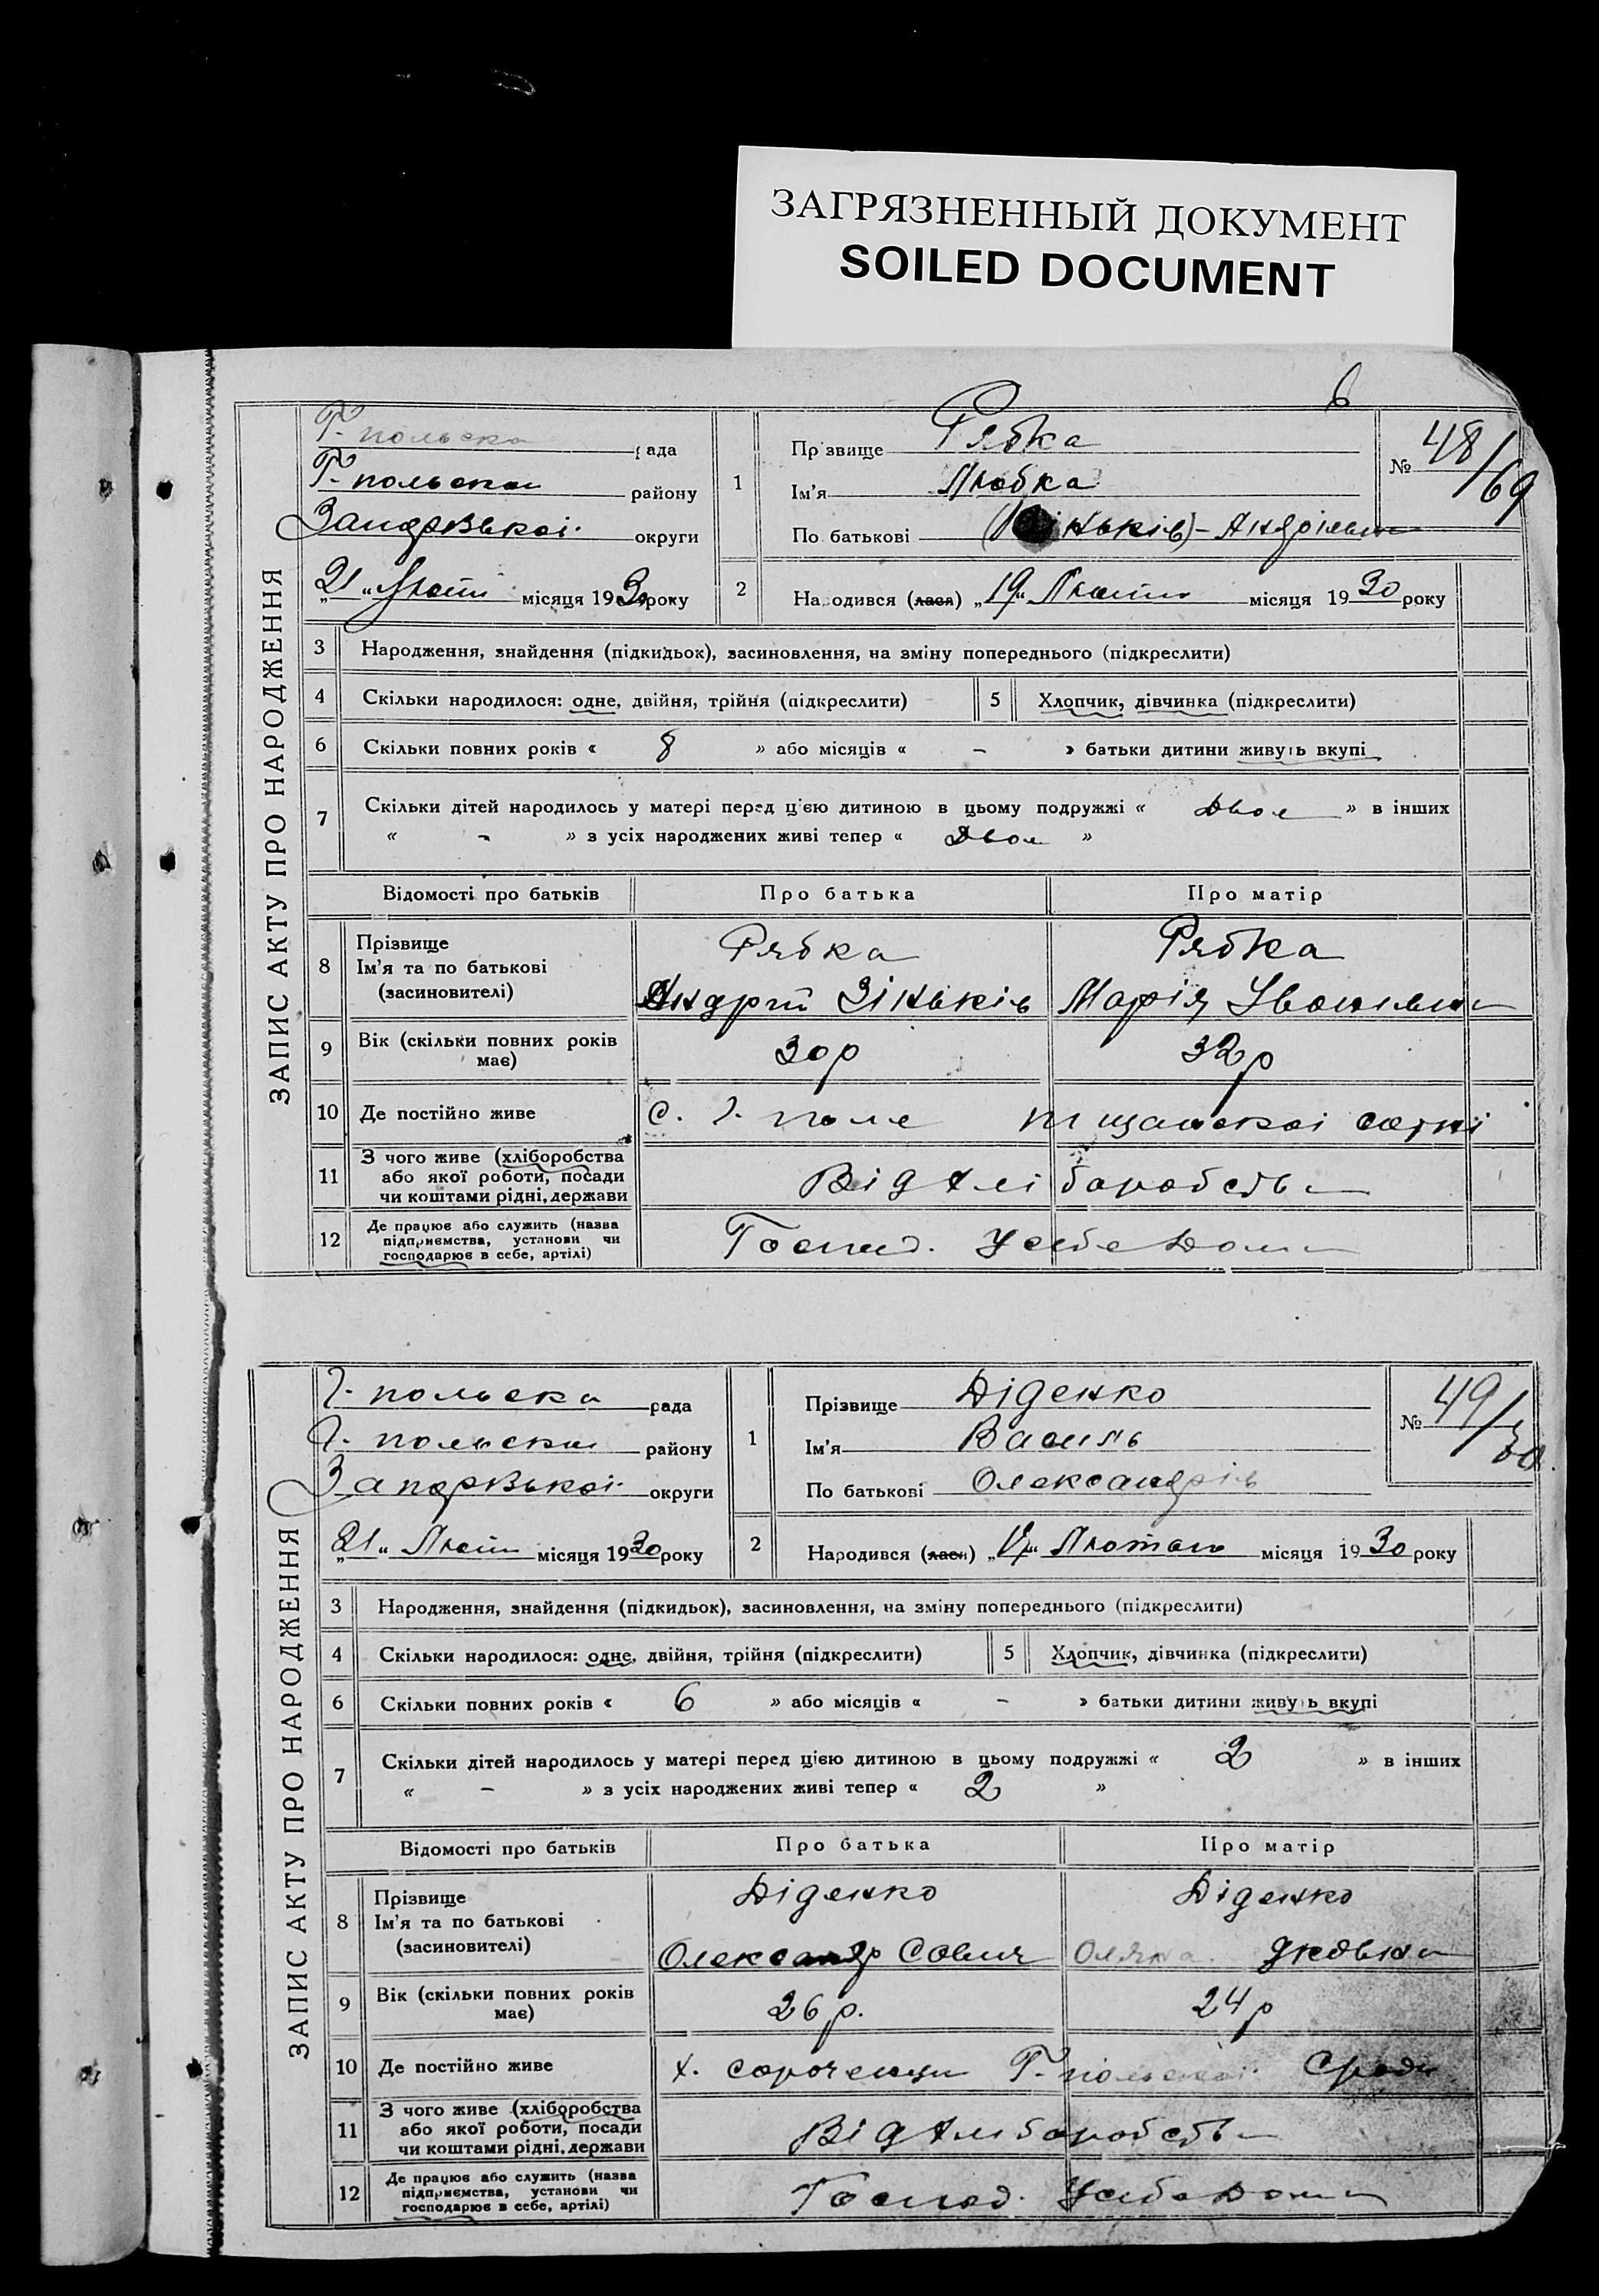 ЗАГРЯЗНЕННЫЙ ДОКУМЕНТ
SOILED DOCUMENT
6
ЗАПИС АКТУ ПРО НАРОДЖЕННЯ
Г. польска рада
Г. польска району
округи
"21" місяця 1930 року
1 Прізвище Рябка
Ім'я Любка
По батькові
№ 48/69
2 Народився (лася) "19" місяця 1930 року
3 Народження, знайдення (підкидьок), засиновлення, на зміну попереднього (підкреслити)
4 Скільки народилося: одне, двійня, трійня (підкреслити) 5 Хлопчик, дівчинка (підкреслити)
6 Скільки повних років « 8 » або місяців « - » батьки дитини живуть вкупі
7 Скільки дітей народилось у матері перед цією дитиною в цьому подружжі « Двоє » в інших
« - » з усіх народжених живі тепер « Двоє »
Відомості про батьків Про батька Про матір
8 Прізвище Рябка Рябка
Ім'я та по батькові
(засиновителі) Андрій Зіньків Марія Іванівна
9 Вік (скільки повних років має) 30р 32р
10 Де постійно живе С. Г. поле сотні
11 З чого живе (хліборобства
або якої роботи, посади
чи коштами рідні, держави Від хліборобства
12 Де працює або служить (назва
підприємства, установи чи
господарює в себе, артілі) Господ. у себе дома
ЗАПИС АКТУ ПРО НАРОДЖЕННЯ
Г. польска рада
Г. польска району
округи
"21" місяця 1930 року
1 Прізвище Діденко
Ім'я Василь
По батькові Олександрів
№ 49
2 Народився (лася) Лютого місяця 1930 року
3 Народження, знайдення (підкидьок), засиновлення, на зміну попереднього (підкреслити)
4 Скільки народилося: одне, двійня, трійня (підкреслити) 5 Хлопчик, дівчинка (підкреслити)
6 Скільки повних років « 6 » або місяців « - » батьки дитини живуть вкупі
7 Скільки дітей народилось у матері перед цією дитиною в цьому подружжі « 2 » в інших
« - » з усіх народжених живі тепер « 2 »
Відомості про батьків Про батька Про матір
8 Прізвище Діденко Діденко
Ім'я та по батькові
(засиновителі) Олександр
9 Вік (скільки повних років має) 26 р. 24 р
10 Де постійно живе х.
11 З чого живе (хліборобства
або якої роботи, посади
чи коштами рідні, держави Від хліборобства
12 Де працює або служить (назва
підприємства, установи чи
господарює в себе, артілі) Господ. у себе дома